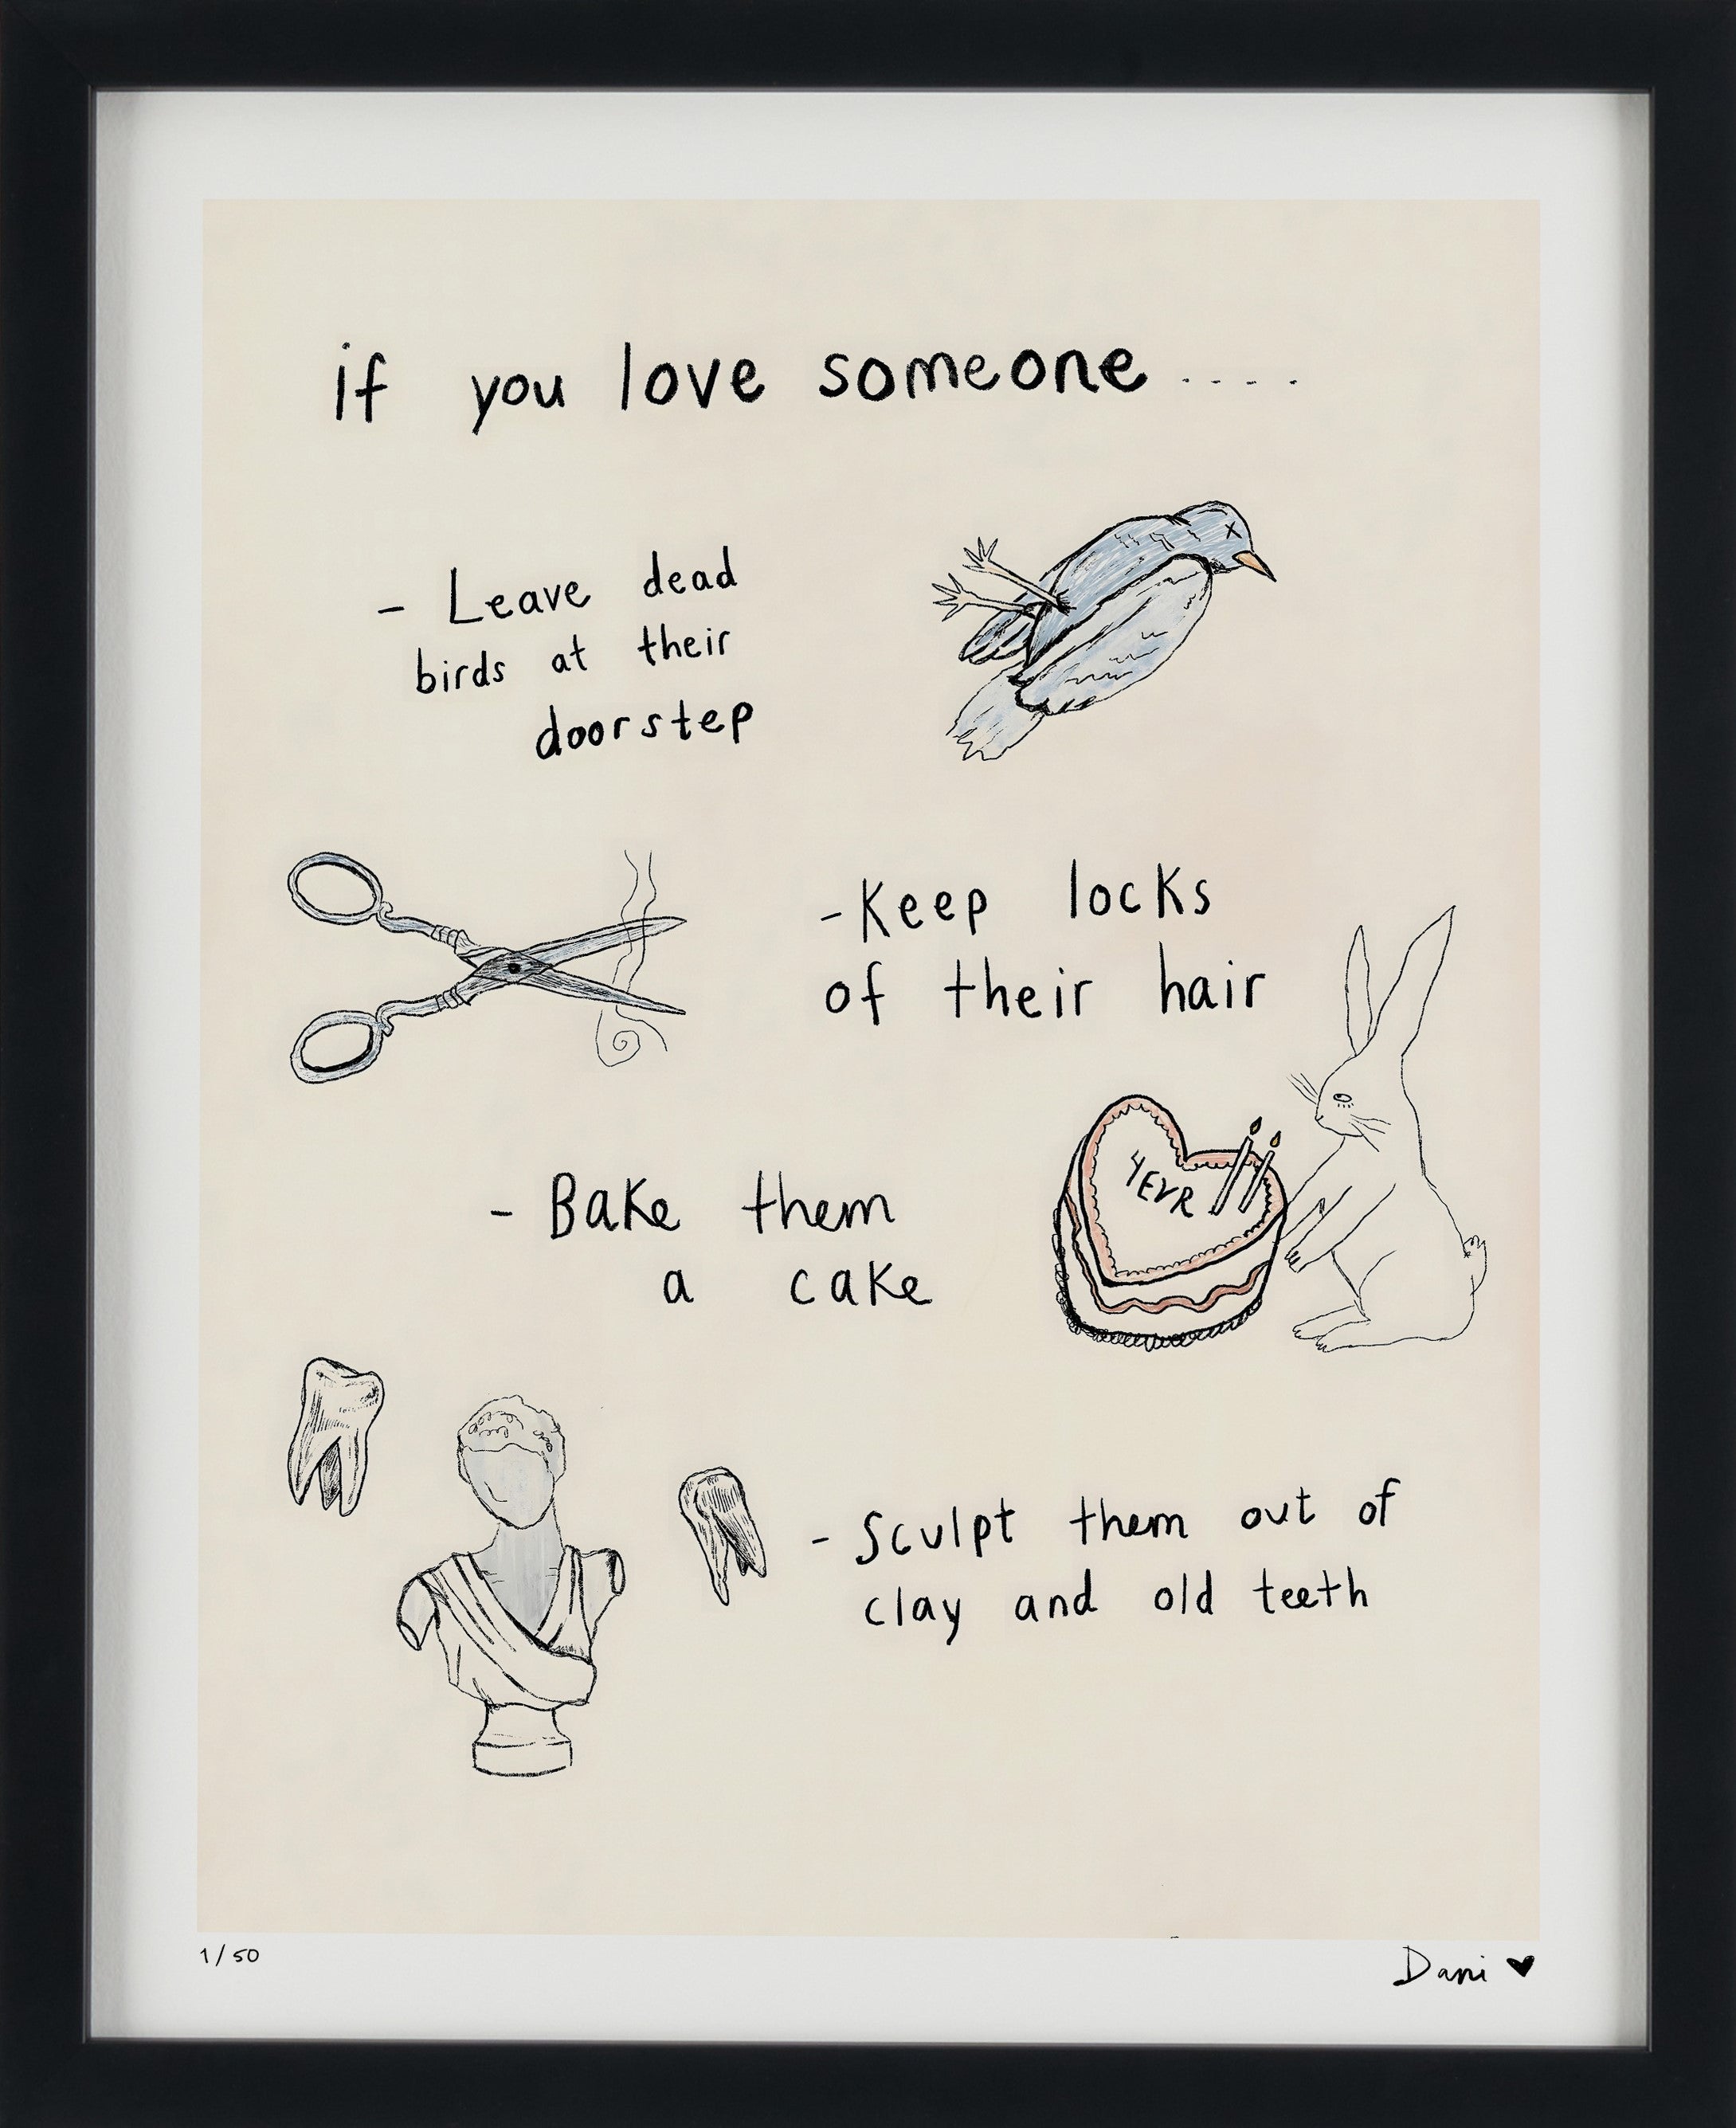 if you love someone....
- Leave dead
birds at their
doorstep
- Keep locks
of their hair
- Bake them
a cake
YEVR
- Sculpt them out of
clay and old teeth
1/50
Dani ♥